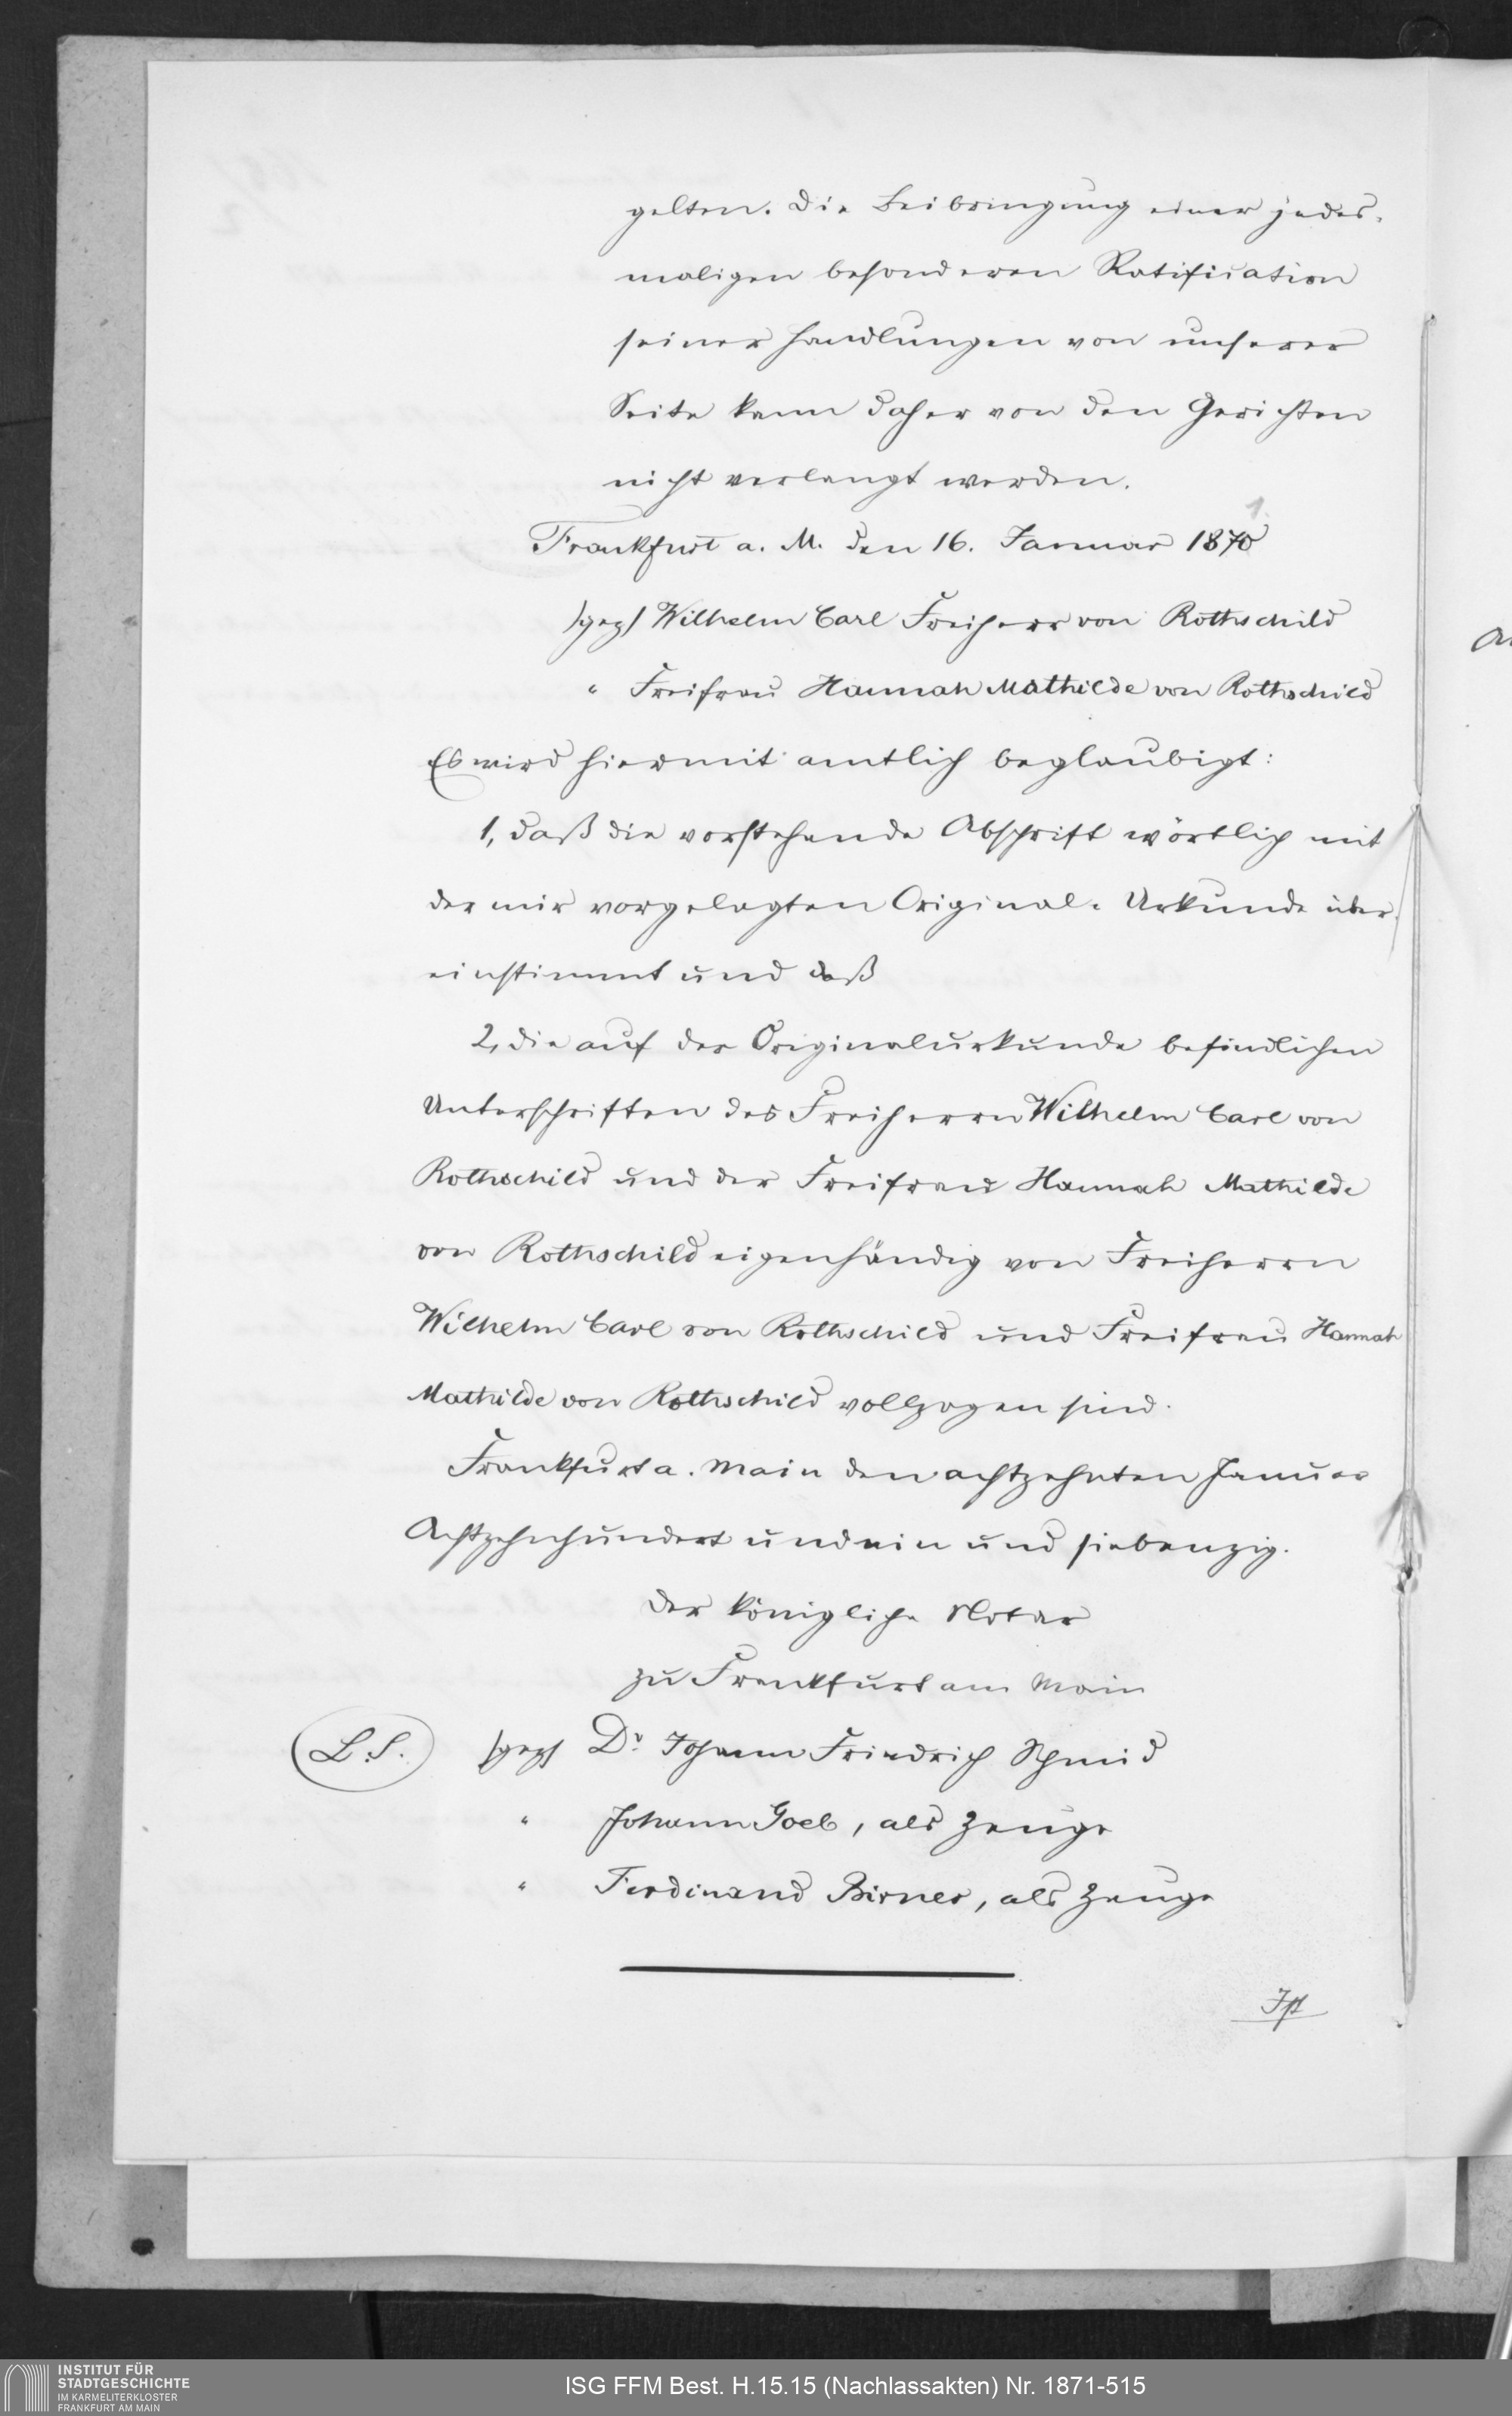 gelten. Die Beibringung einer jedes-
maligen besonderen Ratification
seiner Handlungen von unserer
Seite kann daher von den Gerichten
nicht verlangt werden.
1.
Frankfurt a. M. den 16. Januar 1870
/gez/ Wilhelm Carl Freiherr von Rothschild
" Freifrau Hannah Mathilde von Rothschild
Es wird hiermit amtlich beglaubigt:
1, daß die vorstehende Abschrift wörtlich mit
der mir vorgelegten Original-Urkunde über-
einstimmt und daß
2, die auf der Originalurkunde befindlichen
Unterschriften des Freiherrn Wilhelm Carl von
Rothschild und der Freifrau Hannah Mathilde
von Rothschild eigenhändig von Freiherrn
Wilhelm Carl von Rothschild und Freifrau Hannah
Mathilde von Rothschild vollzogen sind.
Frankfurt a. Main den achtzehnten Januar
Achtzehnhundert und ein und siebenzig.
Der königliche Notar
zu Frankfurt am Main
L.S. /gez/ Dr. Johann Friedrich Schmid
" Johann Goeb, als Zeuge
" Ferdinand Birner, als Zeuge
Ist
INSTITUT FÜR
STADTGESCHICHTE
IM KARMELITERKLOSTER
FRANKFURT AM MAIN
ISG FFM Best. H.15.15 (Nachlassakten) Nr. 1871-515